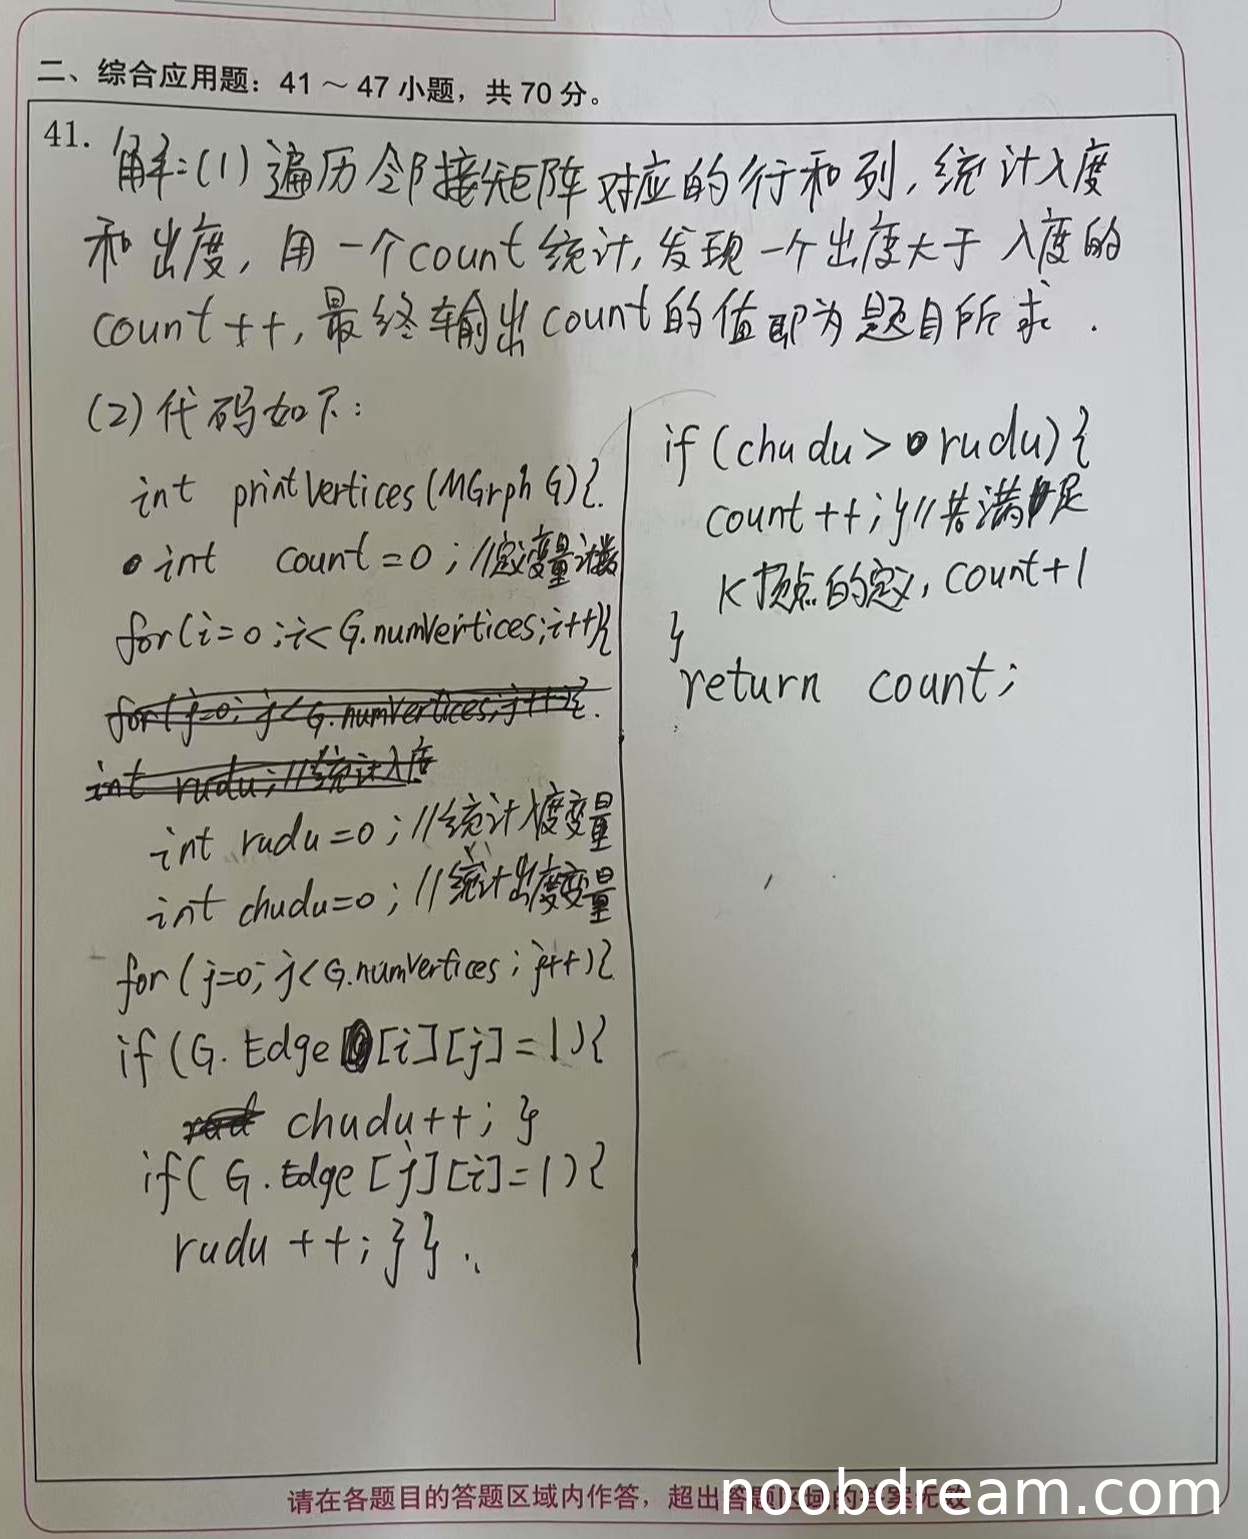 二、综合应用题：41～47小题，共70分。
41. 解:(1)遍历邻接矩阵对应的行和列,统计入度
和出度,用一个count统计,发现一个出度大于入度的
count++,最终输出count的值即为题目所求.
(2)代码如下:
int printVertices(MGrph G){
int count=0;//定义变量计数
for(i=0;i<G.numVertices;i++){
for(j=0;j<G.numVertices;j++){
int rudu;//统计入度
int rudu=0;//统计入度变量
int chudu=0;//统计出度变量
for(j=0;j<G.numVertices;j++){
if(G.Edge[i][j]=1){
chudu++;}
if(G.Edge[j][i]=1){
rudu++;}}
if(chudu>rudu){
count++;}//若满足
K顶点的定义,count+1
}
return count;
请在各题目的答题区域内作答，超出答题区域的答案无效
noobdream.com